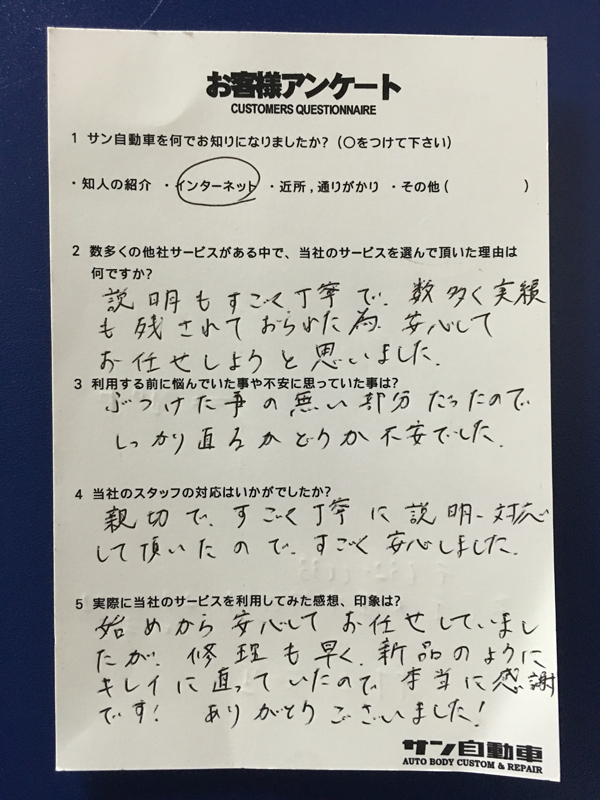 お客様アンケート
CUSTOMERS QUESTIONNAIRE
1 サン自動車を何でお知りになりましたか?(〇をつけて下さい)
・知人の紹介 ・インターネット ・近所,通りがかり ・その他( )
2 数多くの他社サービスがある中で、当社のサービスを選んで頂いた理由は
何ですか?
説明もすごく丁寧で、数多く実績
も残されておられた為、安心して
お任せしようと思いました。
3 利用する前に悩んでいた事や不安に思っていた事は?
ぶつけた事の無い部分だったので
しっかり直るかどうか不安でした。
4 当社のスタッフの対応はいかがでしたか?
親切で、すごく丁寧に説明・対応
して頂いたので、すごく安心しました。
5 実際に当社のサービスを利用してみた感想、印象は?
始めから安心してお任せしていまし
たが、修理も早く、新品のように
キレイに直っていたので、本当に感謝
です! ありがとうございました!
サン自動車
AUTO BODY CUSTOM & REPAIR